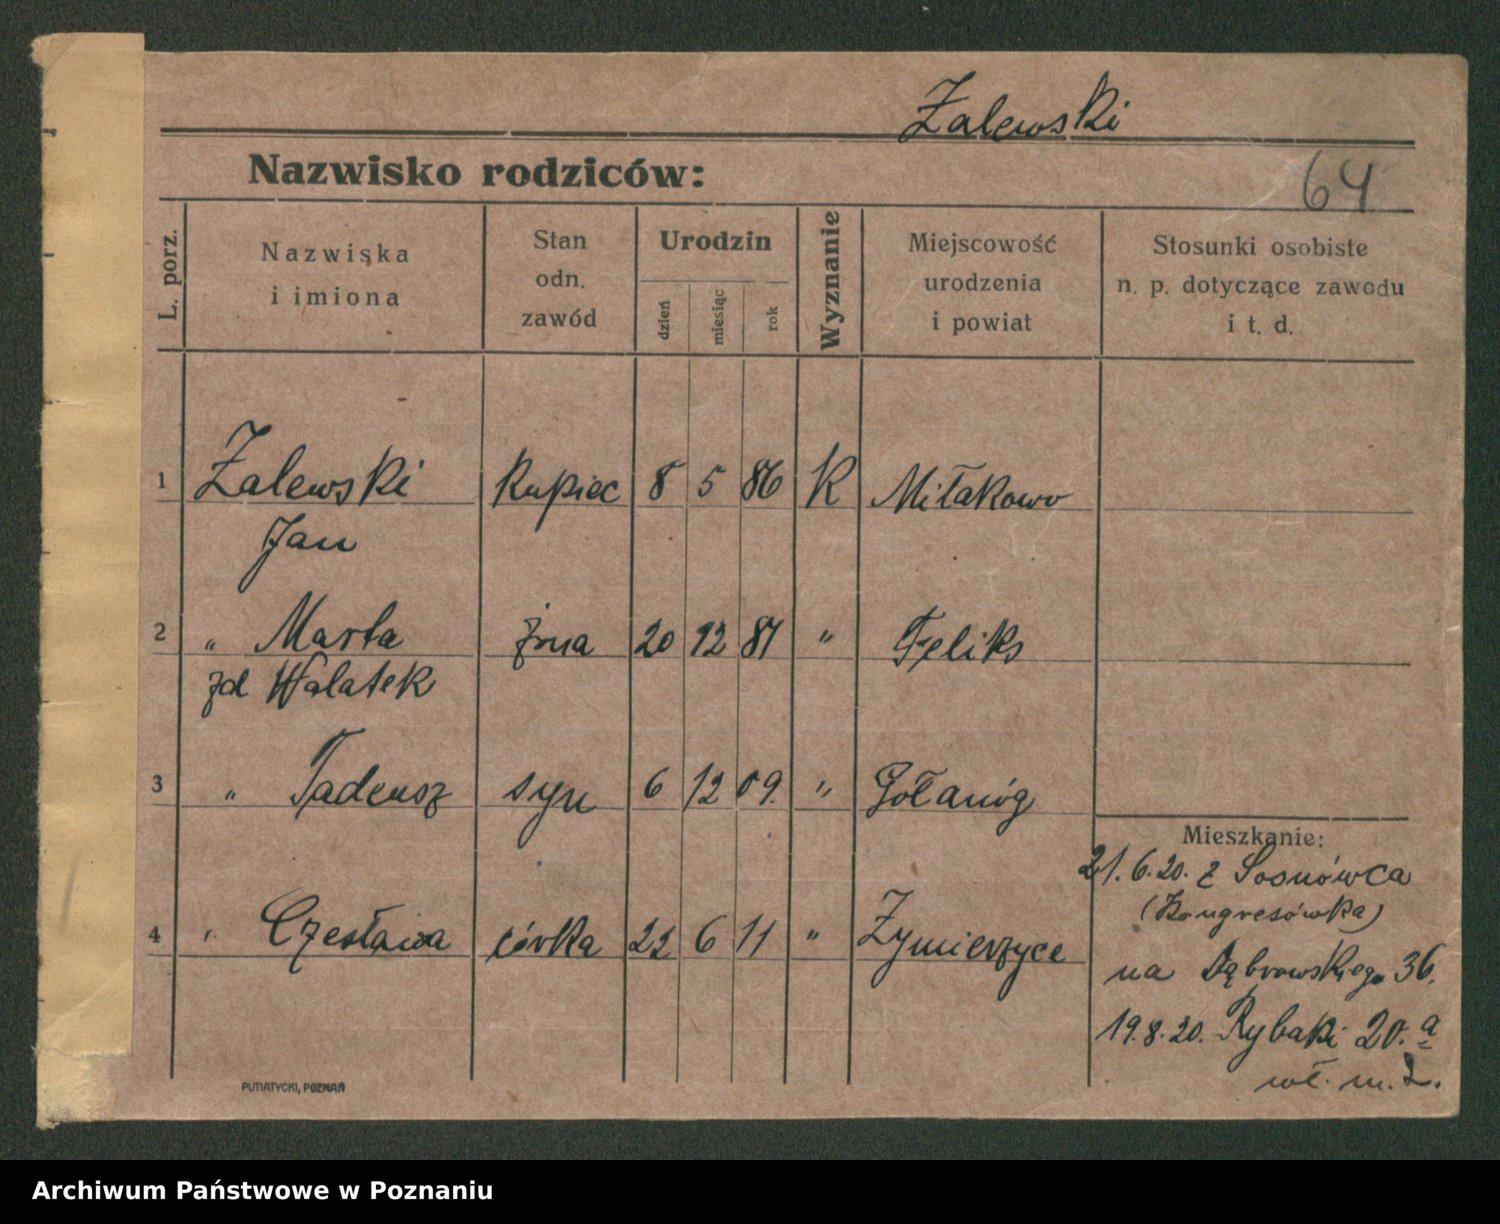 Zalewski
Nazwisko rodziców:
64
L. porz.
Nazwiska
i imiona
Stan
odn.
zawód
Urodzin
dzień
miesiąc
rok
Wyznanie
Miejscowość
urodzenia
i powiat
Stosunki osobiste
n. p. dotyczące zawodu
i t. d.
1 Zalewski Kupiec 8 5 86 K Miłakowo
Jan
2 " Marta żona 20 12 87 " Feliks
zd Walatek
3 " Tadeusz syn 6 12 09. " Gołanóg
Mieszkanie:
21. 6. 20. z Sosnówca
(Kongresówka)
4 " Czesława córka 22 6 11 " Zymierzyce
na Dąbrowskiego 36.
19. 8. 20. Rybaki 20. a
wł. m. 2.
PUTIATYCKI, POZNAŃ
Archiwum Państwowe w Poznaniu